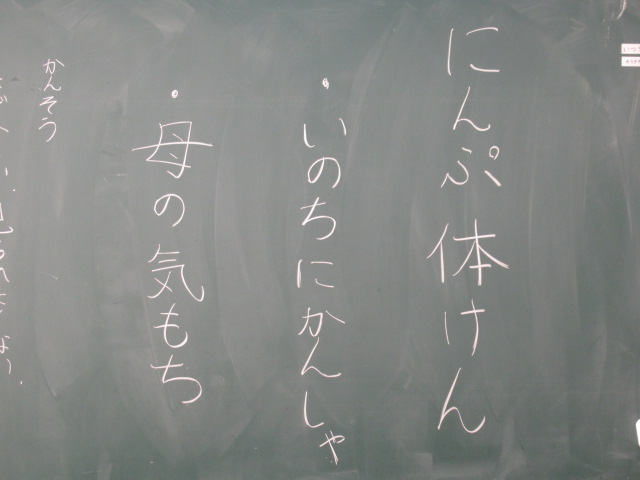 にんぷ体けん
・いのちにかんしゃ
・母の気もち
かんそう